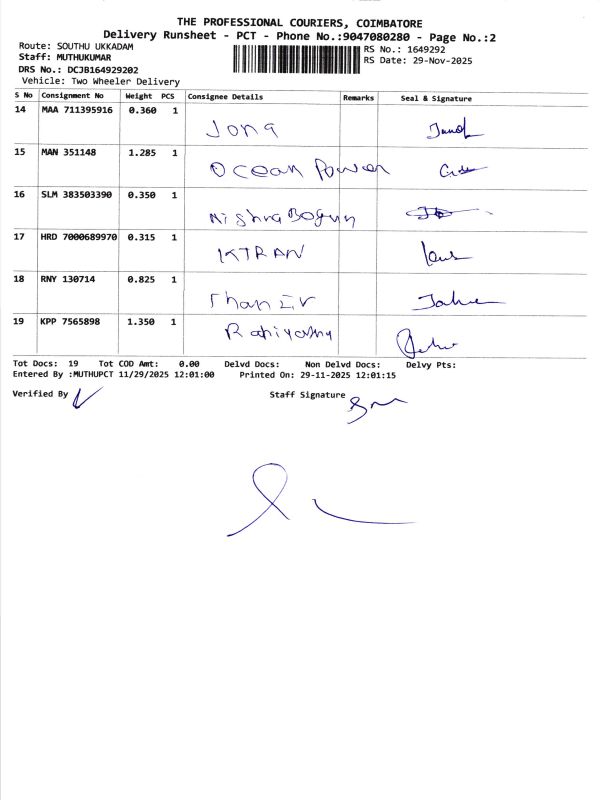 THE PROFESSIONAL COURIERS, COIMBATORE
Delivery Runsheet - PCT - Phone No.:9047080280 - Page No.:2
Route: SOUTHU UKKADAM
RS No.: 1649292
Staff: MUTHUKUMAR
RS Date: 29-Nov-2025
DRS No.: DCJB164929202
Vehicle: Two Wheeler Delivery
S No Consignment No Weight PCS Consignee Details Remarks Seal & Signature
14 MAA 711395916 0.360 1 Jong
15 MAN 351148 1.285 1 Ocean Power
16 SLM 383503390 0.350 1
17 HRD 7000689970 0.315 1 KTRAN
18 RNY 130714 0.825 1
19 KPP 7565898 1.350 1
Tot Docs: 19 Tot COD Amt: 0.00 Delvd Docs: Non Delvd Docs: Delvy Pts:
Entered By :MUTHUPCT 11/29/2025 12:01:00 Printed On: 29-11-2025 12:01:15
Verified By Staff Signature